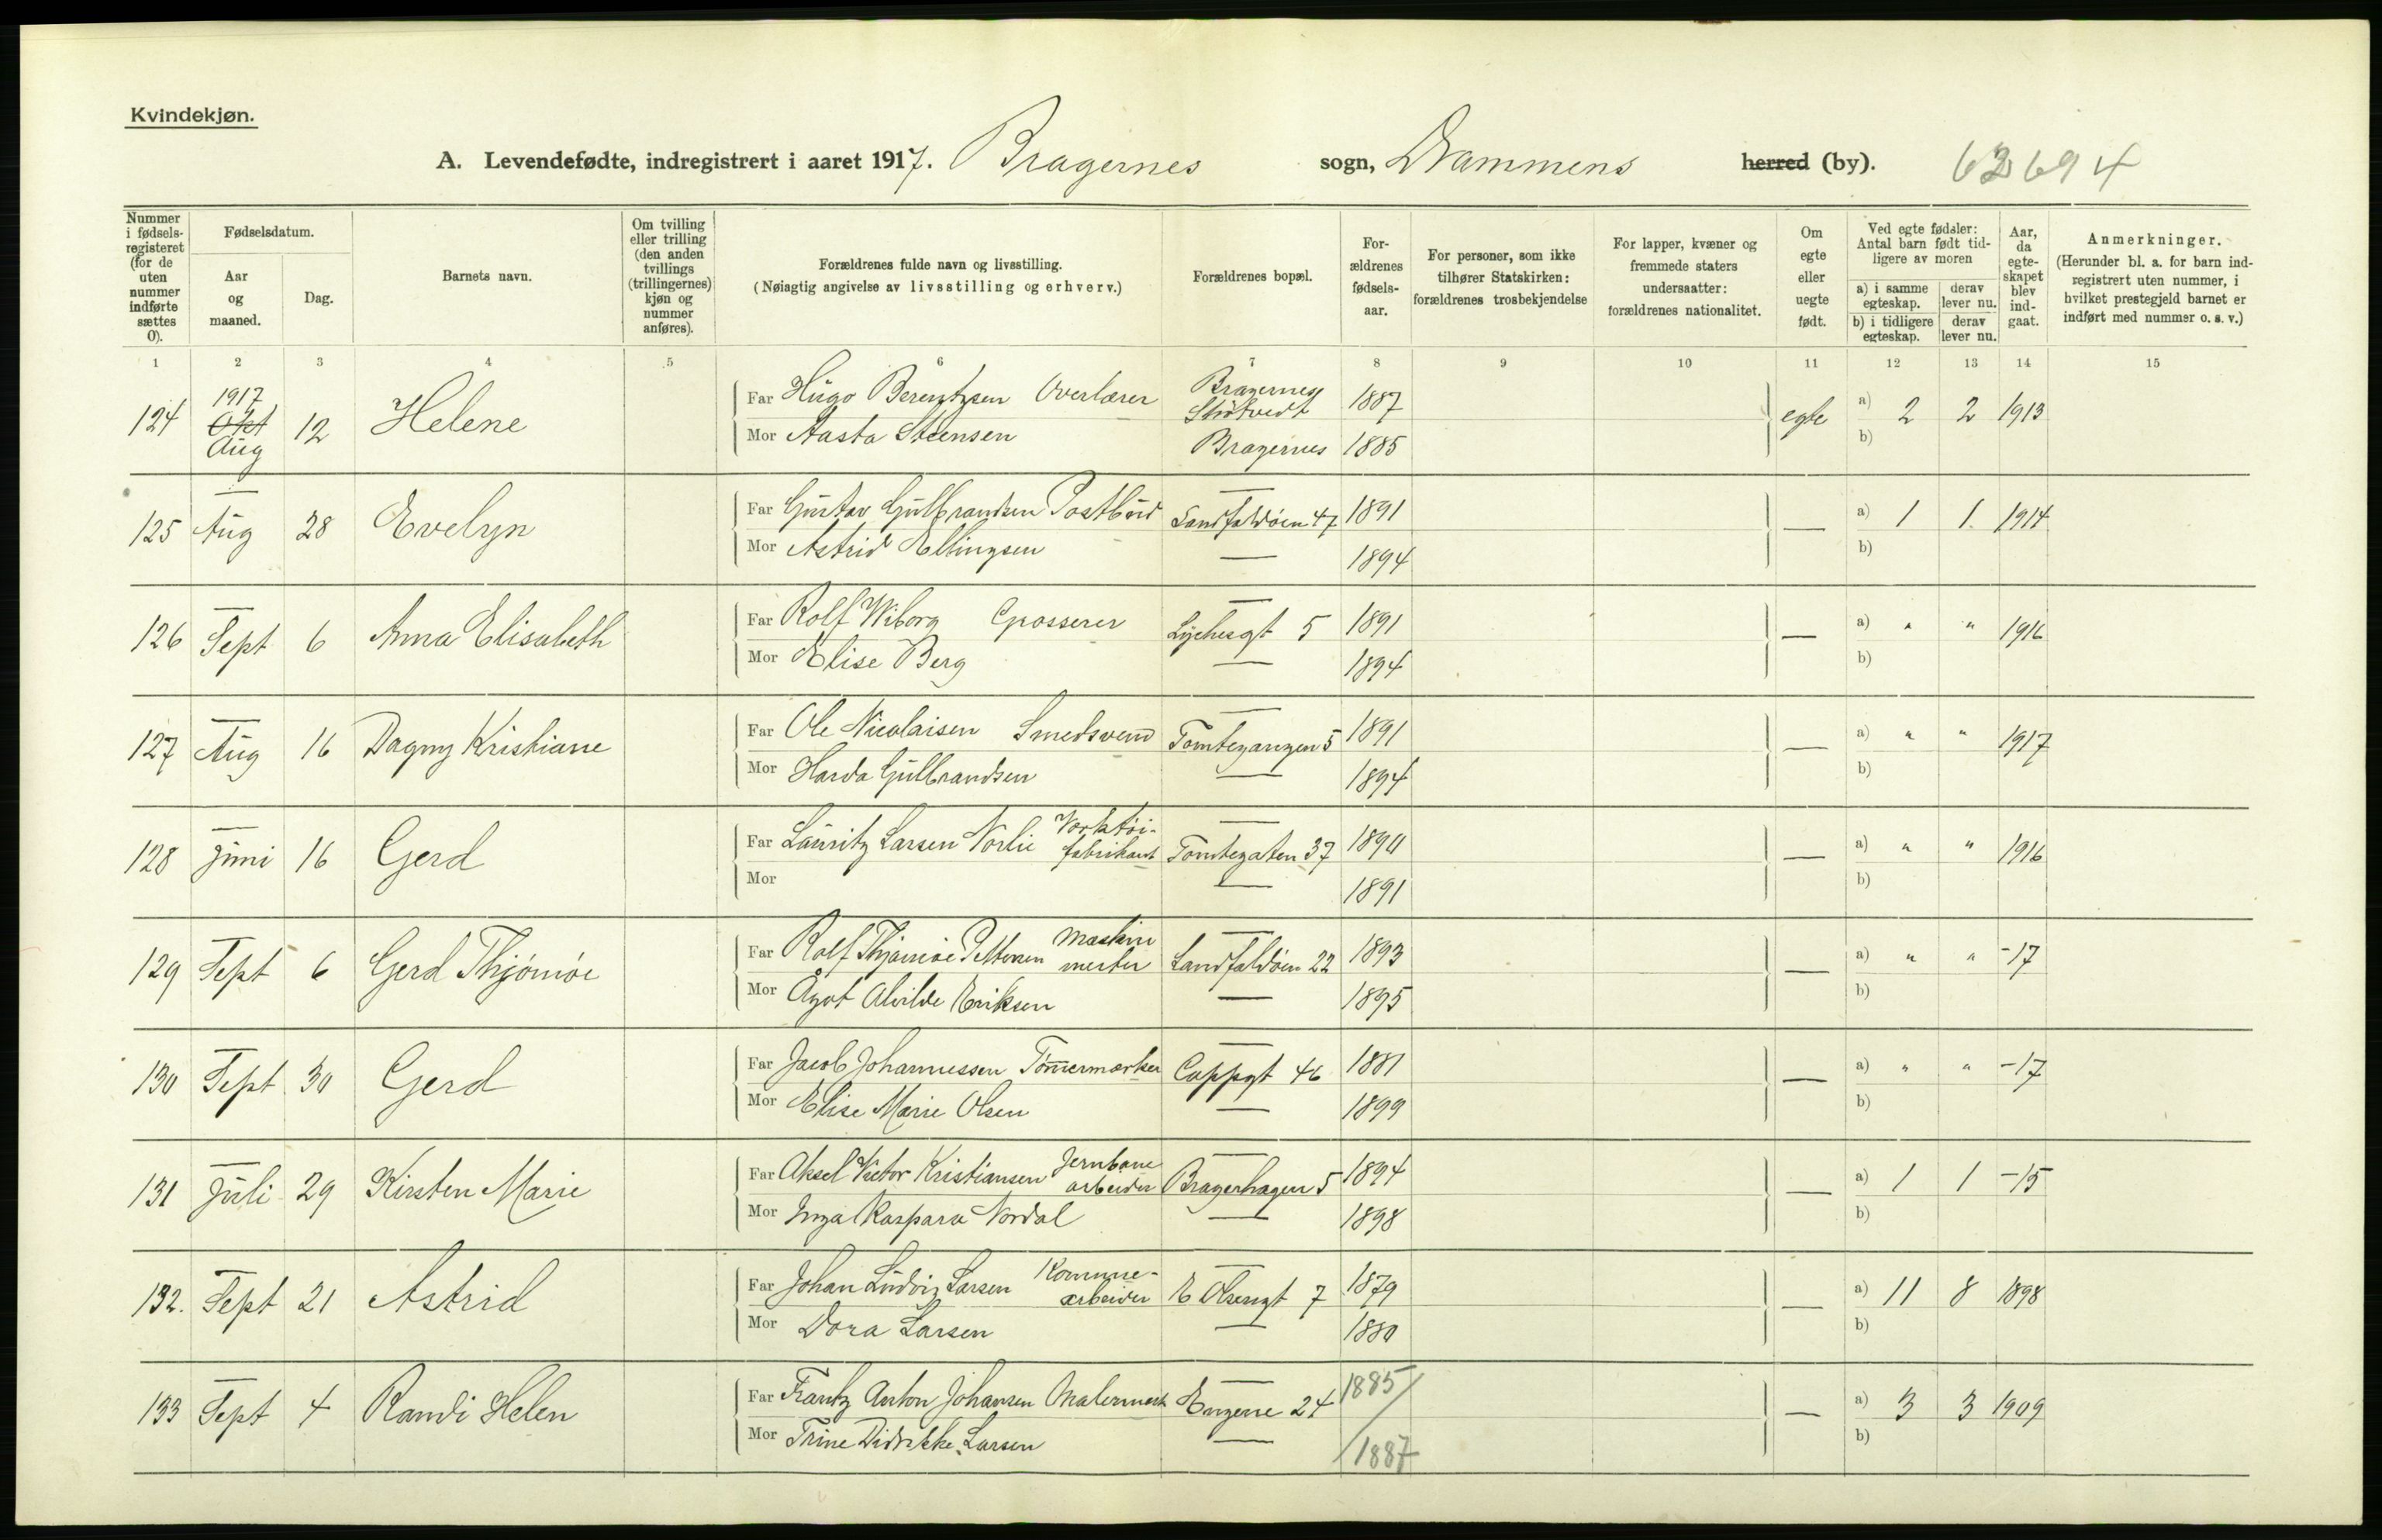 Kvindekjøn.
A. Levendefødte, indregistrert i aaret 1917. Bragernes sogn, Drammens herred (by). 63694
Nummer i fødsels-registeret (for de uten nummer indførte sættes 0).
Fødselsdatum.
Aar og maaned.
Dag.
Barnets navn.
Om tvilling eller trilling (den anden tvillings (trillingernes) kjøn og nummer anføres).
Forældrenes fulde navn og livsstilling.
(Nøiagtig angivelse av livsstilling og erhverv.)
Forældrenes bopæl.
For-ældrenes fødsels-aar.
For personer, som ikke tilhører Statskirken: forældrenes trosbekjendelse
For lapper, kvæner og fremmede staters undersaatter: forældrenes nationalitet.
Om egte eller uegte født.
Ved egte fødsler: Antal barn født tid-ligere av moren
a) i samme egteskap. derav lever nu.
b) i tidligere egteskap. derav lever nu.
Aar, da egte-skapet blev ind-gaat.
Anmerkninger.
(Herunder bl. a. for barn ind-registrert uten nummer, i hvilket prestegjeld barnet er indført med nummer o. s. v.)
1 2 3 4 5 6 7 8 9 10 11 12 13 14 15
124 1917 Okt Aug 12 Helene Far Hugo Berentzsen Overlærer Bragernes 1887 egte a) 2 2 1913
Mor Aasta Steensen Bragernes 1885 b)
125 Aug 28 Evelyn Far Gustav Gulbrandsen Postbud Landfaldøen 47 1891 — a) 1 1. 1914
Mor Astrid Ellingsen — 1894 b)
126 Sept 6 Anna Elisabeth Far Rolf Wiborg Grosserer Lychesgt 5 1891 — a) " " 1916
Mor Elise Berg — 1894 b)
127 Aug 16 Dagny Kristiane Far Ole Nicolaisen Smedsvend Tomtegangen 5 1891 — a) " " 1917
Mor Harda Gulbrandsen — 1894 b)
128 Juni 16 Gerd Far Lauritz Larsen Norlie fabrikant Tomtegaten 37 1890 — a) " " 1916
Mor — 1891 b)
129 Sept 6 Gerd Thjømøe Far Rolf Thjømøe Pettersen Maskinmester Landfaldøen 22 1893 — a) " " -17
Mor Ågot Alvilde Eriksen — 1895 b)
130 Sept 30 Gerd Far Jacob Johannessen Tømmermerker Cappgt 46 1881 — a) " " -17
Mor Elise Marie Olsen — 1899 b)
131 Juli 29 Kirsten Marie Far Aksel Victor Kristiansen Jernbane arbeider Bragerhagen 5 1894 — a) 1 1 -15
Mor Inga Kaspara Nordal — 1898 b)
132. Sept 21 Astrid Far Johan Ludvig Larsen Kommune-arbeider E Olsengt 7 1879 — a) 11 8 1898
Mor Dora Larsen — 1880 b)
133 Sept 4 Randi Helen Far Frantz Anton Johansen Malermest Engene 24 1885 — a) 3 3 1909
Mor Trine Didrikke Larsen — 1887 b)